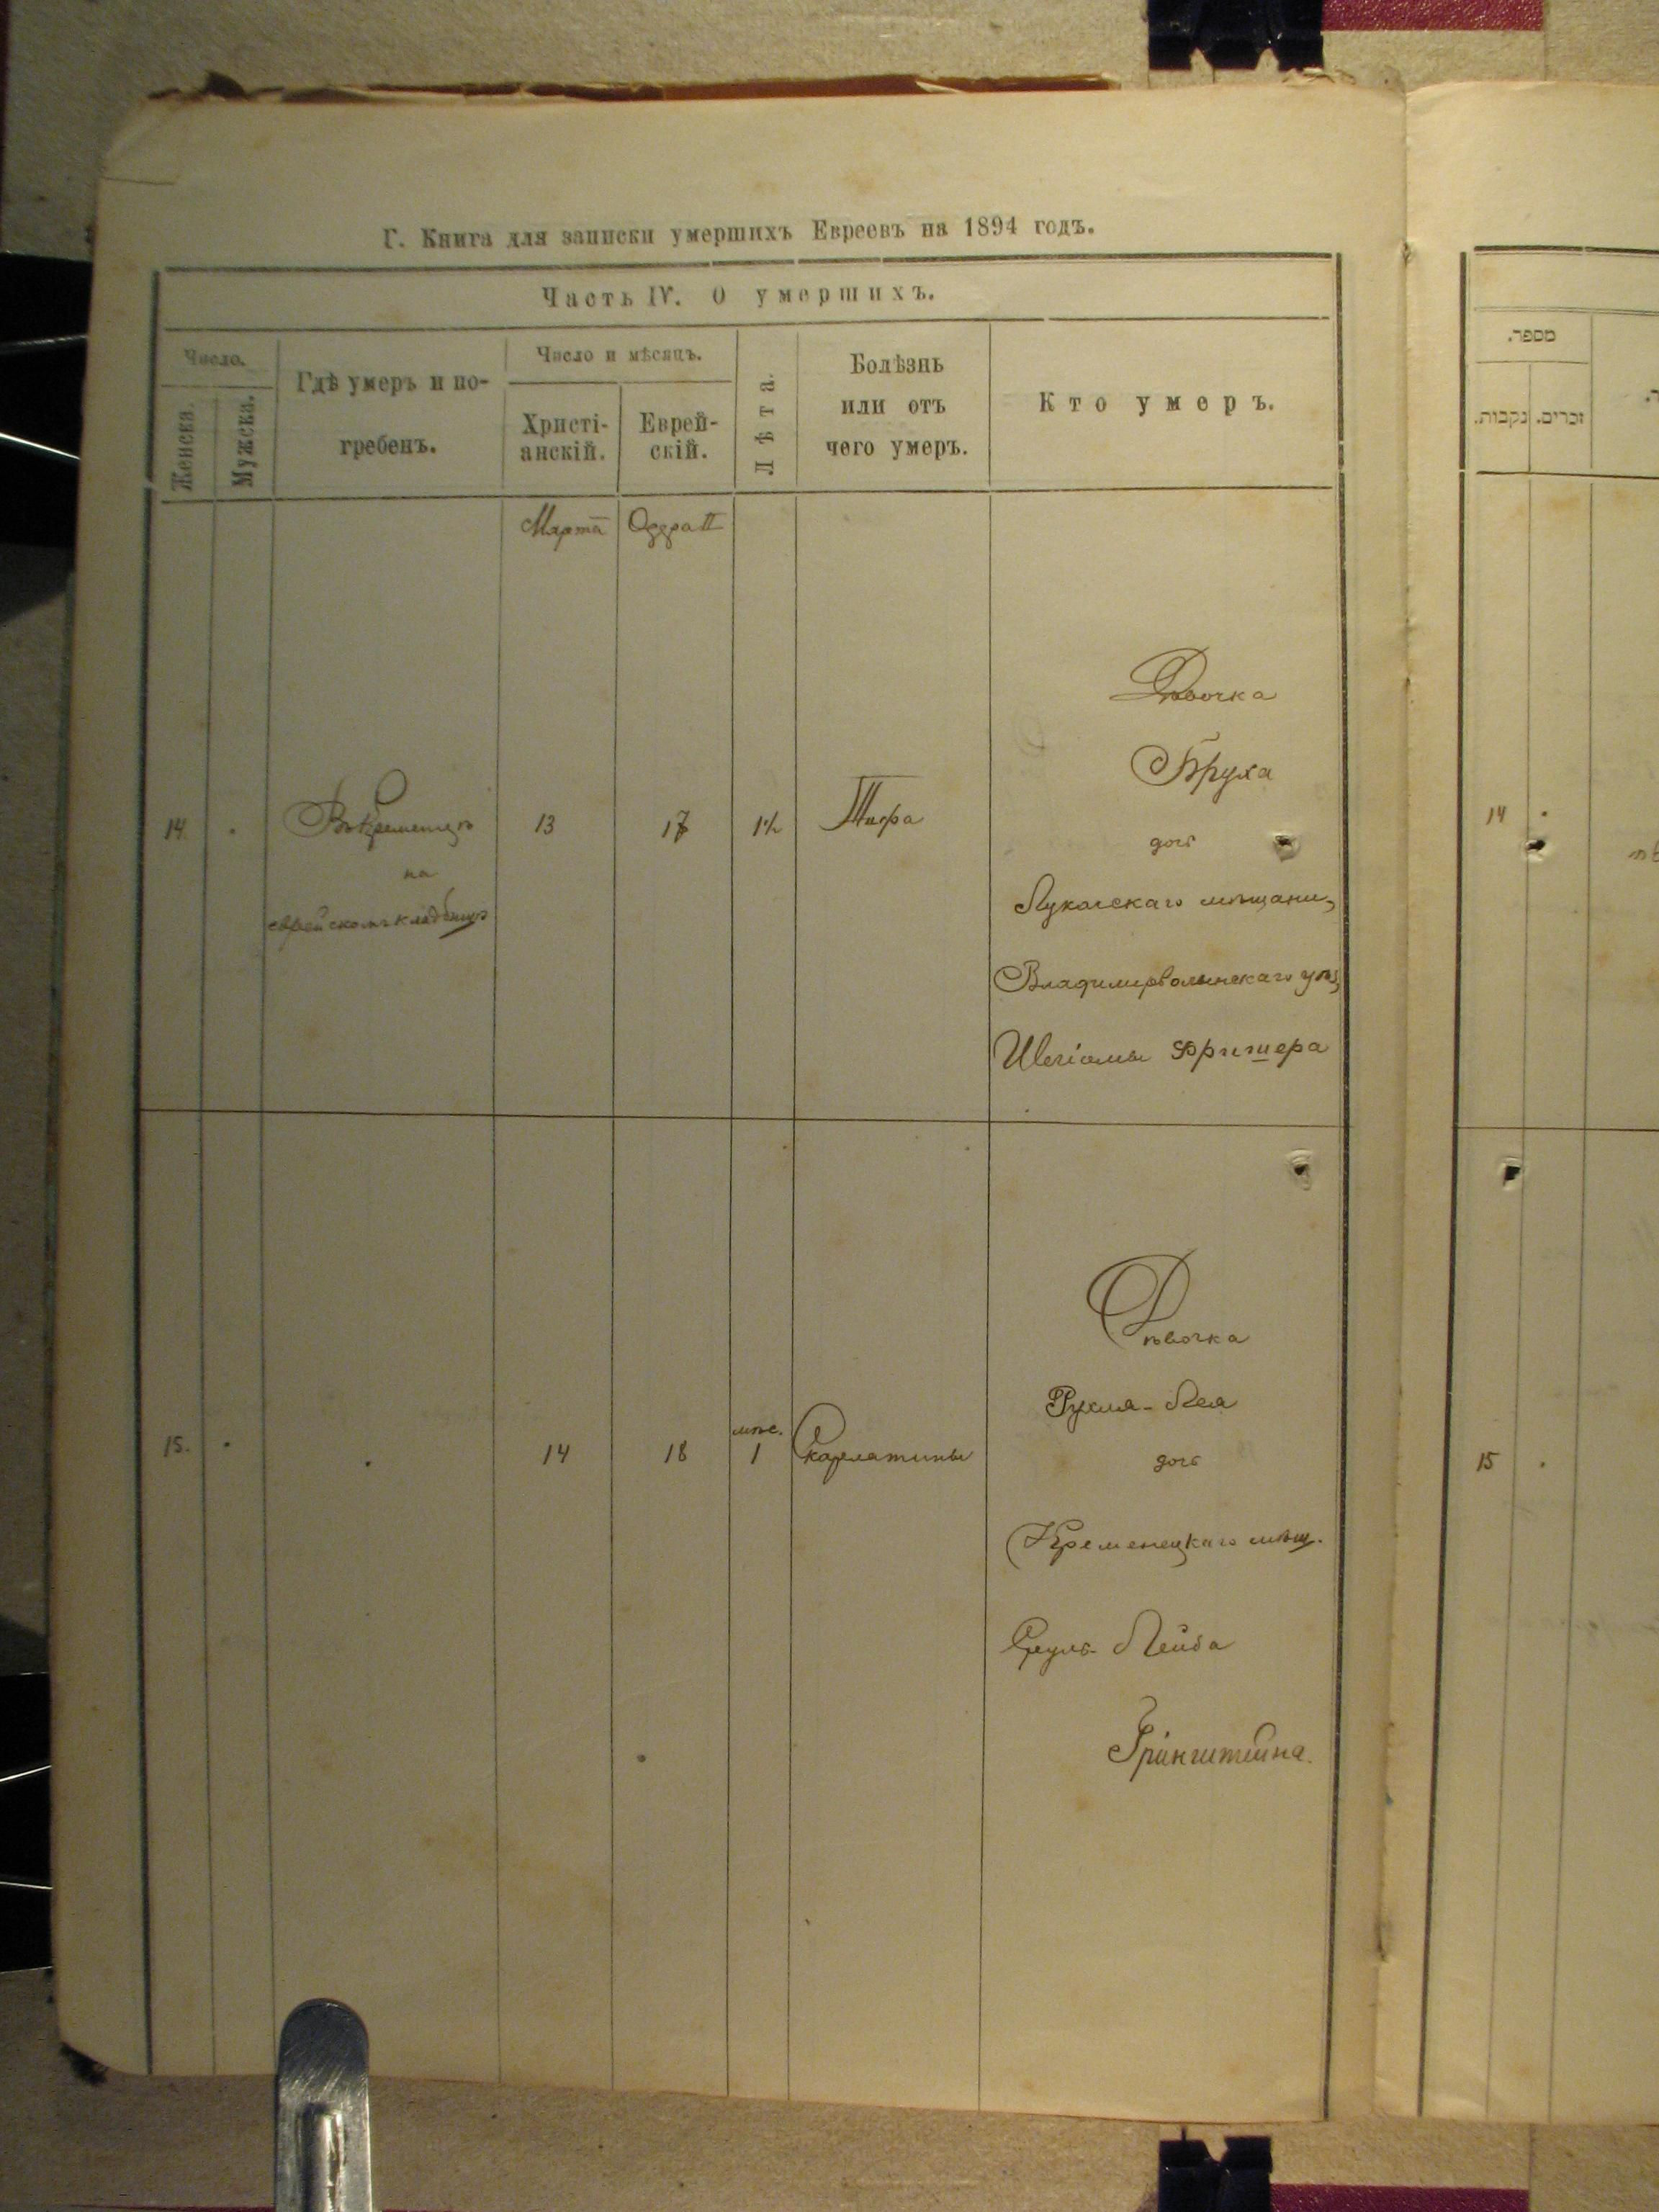 Г. Книга для записки умершихъ Евреевъ на 1894 годъ.
Часть IV. О умершихъ.
Число.
Женска.
Мужска.
Гдѣ умеръ и по-
гребенъ.
Число и мѣсяцъ.
Христі-
анскій.
Еврей-
скій.
Лѣта.
Болѣзнь
или отъ
чего умеръ.
Кто умеръ.
Марта
Оддра II
14
Въ Кременцѣ
на
еврейскомъ кладбищѣ
13
17
1½
Тифа
Дѣвочка
Бруха
дочь
Лукачскаго мѣщани,
Владимирволынскаго уѣз,
Фришера
15.
14
18
мѣс.
1
Скарлатины
Дѣвочка
Рухля-Лея
дочь
Кременецкаго мѣщ.
Сруль-Лейба
Грінштейна.
מספר.
זכרים.
נקבות.
14
15